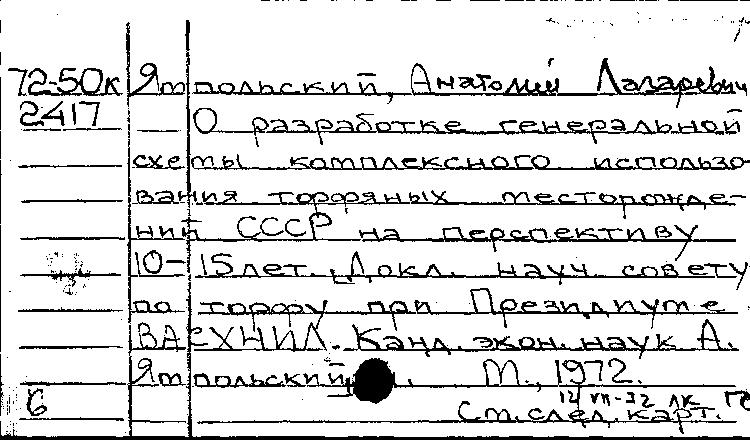 72-50к Ятпольский, Анатолий Лазаревич
2417 — О разработке генеральной
схемы комплексного использо-
вания торфяных месторожде-
ний СССР на перспективу
10-15 лет. Докл. науч. совету
по торфу при Президиуме
ВАСХНИЛ. Канд. экон. наук А.
Ятпольский. М., 1972.
12 VII-72 ЛК
6 См. след. карт.